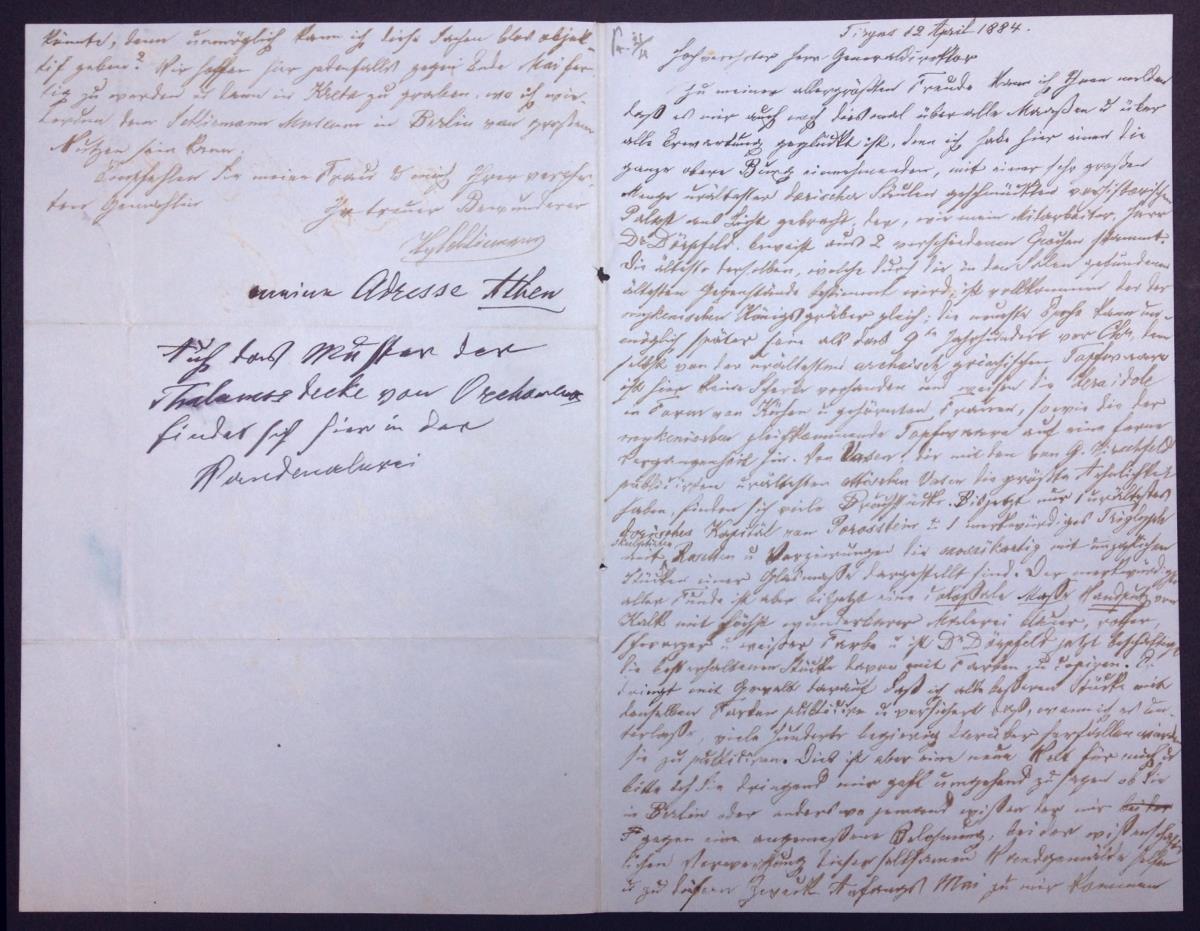 Tiryns 12 April 1884.
Hochverehrter Herr Generaldirektor
Zu meiner allergrößten Freude kann ich Ihnen melden
daß es mir auch noch diesmal über alle Maaßen u über
alle Erwartung geglückt ist, denn ich habe hier einen die
ganze obere Burg einnehmenden, mit einer sehr großen
Menge uraltester dorischer Säulen geschmückten vorhistorischen
Palast ans Licht gebracht, der, wie mein Mitarbeiter, Herr
Dr Dörpfeld beweist aus 2 verschiedenen Epochen stammt.
Die älteste derselben, welche durch die in den Sälen gefundenen
ältesten Gegenstände bestimmt wird, ist vollkommen der der
mykenischen Königsgräber gleich; die neueste Epoche kann un-
möglich später sein als das 9te Jahrhundert vor Chr, denn
selbst von der uraltesten archaisch griechischen Topfware
ist hier keine Scherbe vorhanden und weisen die Heraidole
in Form von Kühen u gehörnten Frauen, sowie die der
mykenischen gleichkommende Topfware auf eine ferne
Vergangenheit hin. Von Vasen, die mit den von G. Hirschfeld
publicirten uraltesten attischen Vasen die größte Aehnlichkeit
haben, finden sich viele Bruchstücke. Bisjetzt nur 1 uraltestes
dorisches Kapitäl von Porosstein u 1 merkwürdiges Triglyph
mit skulptirten Rosetten u Verzierungen die mosaikartig mit unzähligen
Stücken einer Glasmasse dargestellt sind. Der merkwürdigste
aller Funde ist aber bisjetzt eine colossale Masse Wandputz von
Kalk mit höchst wunderbarer Malerei blauer, rother,
schwarzer u weißer Farbe u ist Dr Dörpfeld jetzt beschäftigt
die besterhaltenen Stücke davon mit Farben zu copiren. Er
dringt mit Gewalt darauf daß ich alle besseren Stücke mit
denselben Farben publicire u versichert daß, wenn ich es un-
terlasse, viele Hunderte begierig darüber herfallen würden
sie zu publiciren. Dies ist aber eine neue Welt für mich u
bitte ich Sie dringend mir gefl umgehend zu sagen ob Sie
in Berlin oder anderswo jemand wissen der mir bei der
gegen eine angemessene Belohnung, bei der wissenschaft-
lichen Verwerthung dieser seltsamen Wandgemälde helfen
u zu diesem Zweck Anfangs Mai zu mir kommen
könnte, denn unmöglich kann ich diese Sachen blos objek-
tif geben? Wir hoffen hier jedenfalls gegen Ende Mai fer-
tig zu werden u dann in Kreta zu graben, wo ich wie-
derum dem Schliemann Museum in Berlin von großem
Nutzen sein kann.
Empfehlen Sie meine Frau u mich Ihrer verehr-
ten Gemahlin
Ihr treuer Bewunderer
HySchliemann
meine Adresse Athen
Auch das Muster der
Thalamosdecke von Orchomenos
findet sich hier in der
Wandmalerei